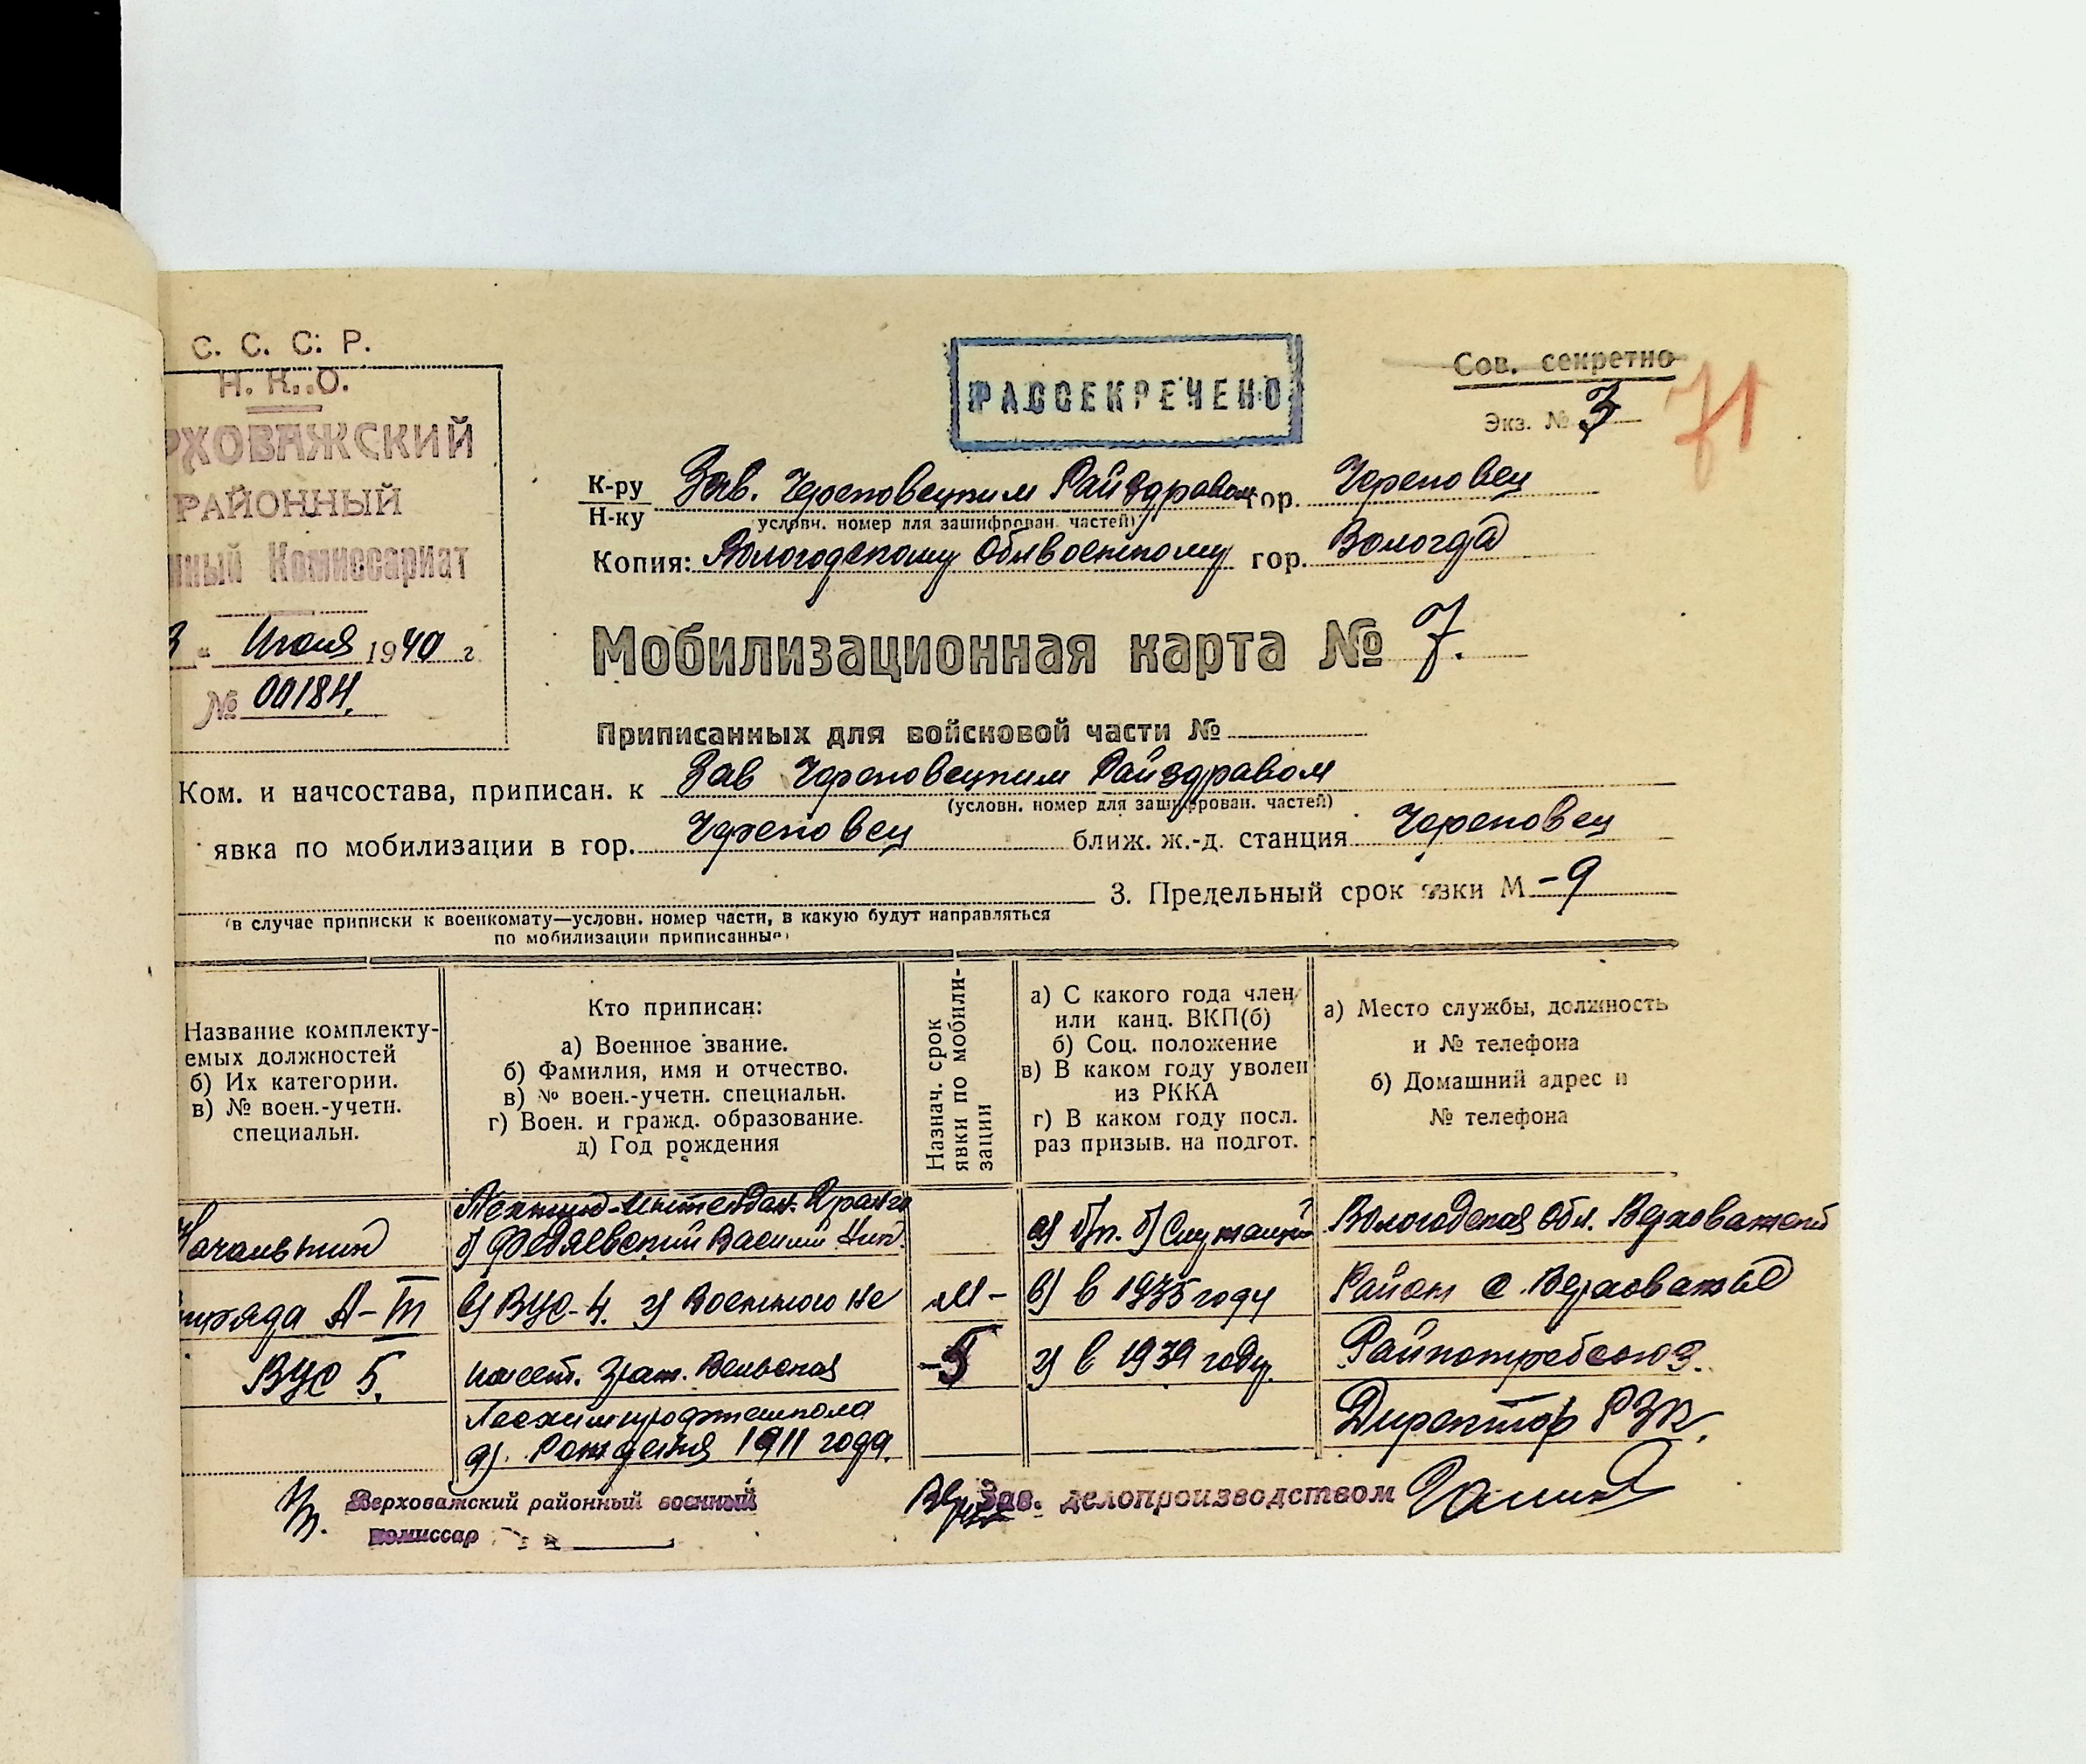 С. С. С. Р.
Н. К. О.
РХОВАЖСКИЙ
РАЙОННЫЙ
нный Комиссариат
3 " Июля 1940 г.
№ 00184.
РАССЕКРЕЧЕНО
Сов. секретно
Экз. № 3
71
К-ру
Н-ку
Зав. Череповецким Райздравом гор. Череповец
условн. номер для зашифрован. частей)
Копия: Вологодскому Облвоенкому гор. Вологда
Мобилизационная карта № 7.
Приписанных для войсковой части №
Ком. и начсостава, приписан. к Зав Череповецким Райздравом
(условн. номер для зашифрован. частей)
явка по мобилизации в гор. Череповец ближ. ж.-д. станция Череповец
3. Предельный срок явки М -9
(в случае приписки к военкомату—условн. номер части, в какую будут направляться
по мобилизации приписанные)
Название комплекту-
емых должностей
б) Их категории.
в) № воен.-учетн.
специальн.
Кто приписан:
а) Военное звание.
б) Фамилия, имя и отчество.
в) № воен.-учетн. специальн.
г) Воен. и гражд. образование.
д) Год рождения
Назнач. срок
явки по мобили-
зации
а) С какого года член
или канд. ВКП(б)
б) Соц. положение
в) В каком году уволен
из РККА
г) В каком году посл.
раз призыв. на подгот.
а) Место службы, должность
и № телефона
б) Домашний адрес и
№ телефона
Начальник
А-III
ВУС 5.
Техник-Интендан. 2 ранга
б) Федяевский Василий Ник.
в) ВУС-4. г) Военного не
имеет. Граж. Вельская
Лесхимпрофтешкола
д). Рождения 1911 года.
М-
-5
а) б/п. б) Служащий
в) в 1935 году
г) в 1939 году.
Вологодская Обл. Верховажский
Район с. Верховажье
Райпотребсоюз.
Директор РЗК.
Верховажский районный военный
комиссар
Зав. делопроизводством